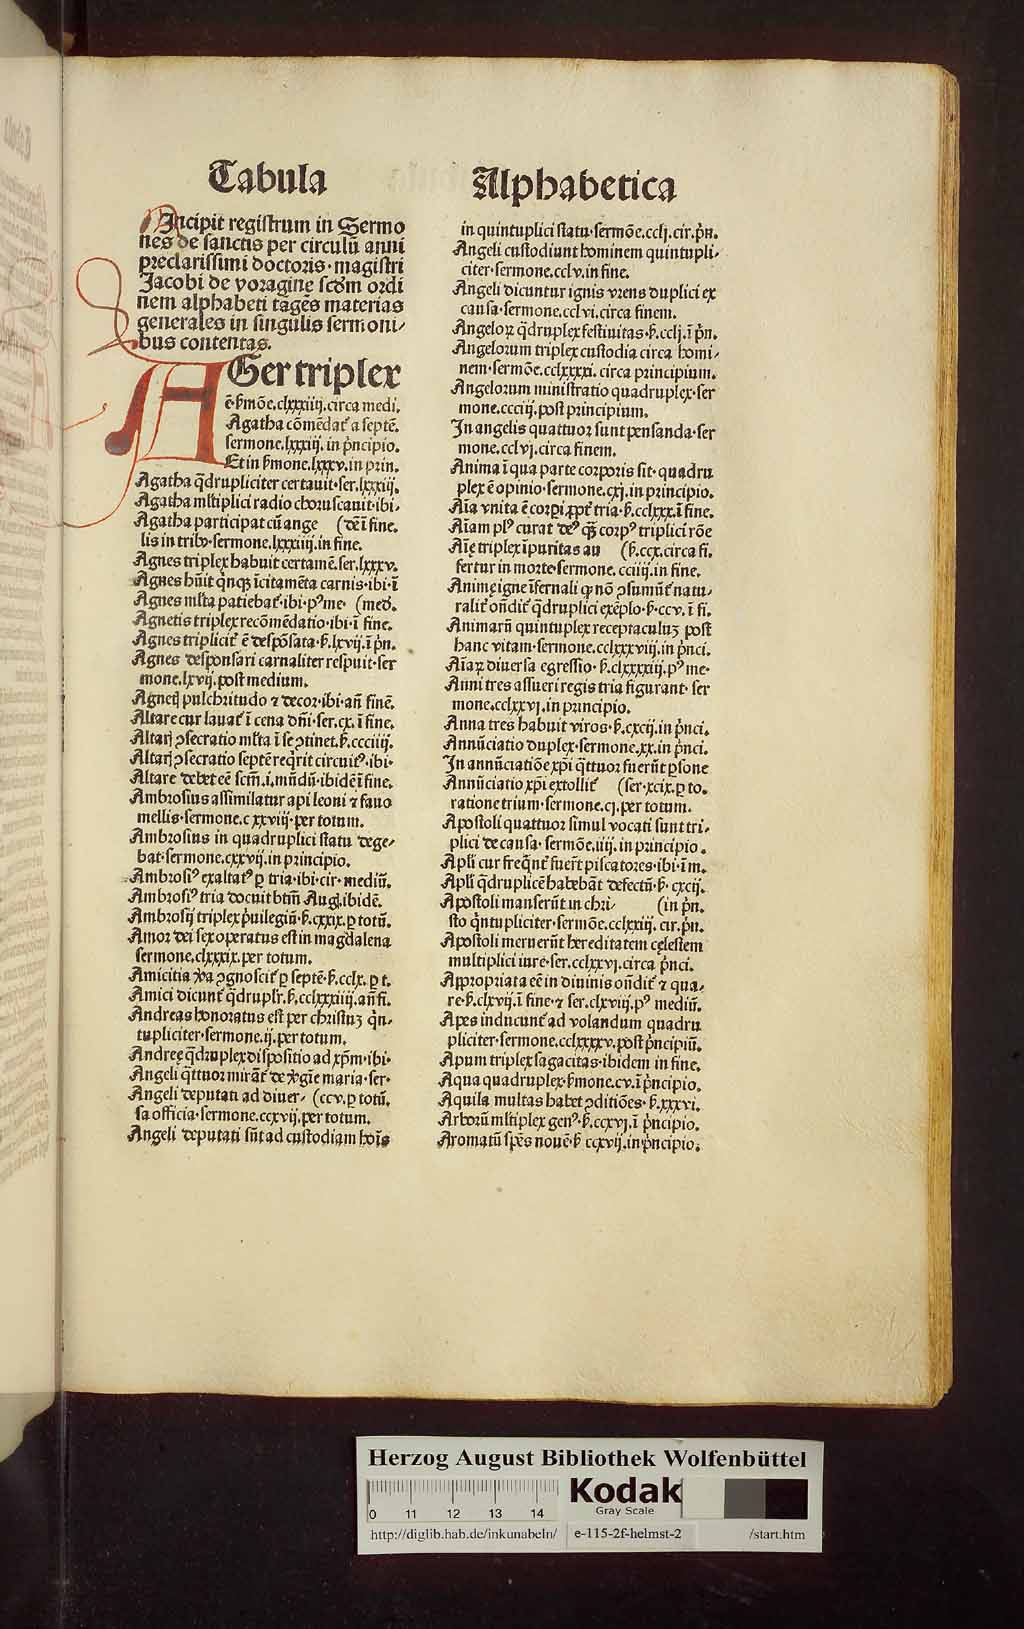 Tabula Alphabetica
Incipit registrum in Sermo
nes de sanctis per circulū anni
preclarissimi doctoris·magistri
Jacobi de voragine scd̄m ordi
nem alphabeti tāgēs materias
generales in singulis sermoni⸗
bus contentas.
AGer triplex
ē·s̄mōe.clxxxiiij.circa medi.
Agatha cōmēdat᷑ a septē.
sermone.lxxxiij. in p̄ncipio.
Et in s̄mone.lxxxv.in prin.
Agatha q̄drupliciter certauit·ser.lxxxiij.
Agatha ml̄tiplici radio choruscauit·ibi⸗
Agatha participat cū ange (dē ī fine.
lis in trib⁹·sermone.lxxxiiij.in fine.
Agnes triplex habuit certamē.ser.lxxxv.
Agnes hūit q̄nqȝ īcitamēta carnis·ibi·ī
Agnes ml̄ta patiebat᷑·ibi·p⁹me· (med.
Agnetis triplex recōmēdatio·ibi·ī fine.
Agnes triplicit᷑ ē despōsata·s̄.lxvij.ī p̄n.
Agnes desponsari carnaliter respuit·ser
mone.lxvij.post medium.
Agnetꝭ pulchritudo ⁊ decor·ibi·an̄ finē.
Altare cur lauat᷑ ī cena dn̄i·ser.cx.ī fine.
Altarꝭ ꝯsecratio ml̄ta ī se ꝯtinet.s̄.ccciiij.
Altarꝭ ꝯsecratio septē req̄rit circuit⁹·ibi·
Altare debet eē scm̄.i.mūdū·ibidē ī fine.
Ambrosius assimilatur api leoni ⁊ fauo
mellis·sermone.cxxviij·per totum.
Ambrosius in quadruplici statu dege⸗
bat·sermone.cxxvij.in principio.
Ambrosi⁹ exaltat⁹ ꝑ tria·ibi·cir·mediū.
Ambrosi⁹ tria docuit btm̄ Augꝭ.ibidē.
Ambrosij triplex p̄uilegiū·s̄.cxxix.ꝑ totū.
Amor dei sex operatus est in magdalena
sermone.clxxxix.per totum.
Amicitia v̄a ꝯgnoscit᷑ ꝑ septē·s̄.cclx.ꝑ t.
Amici dicunt᷑ q̄druplr̄.s̄.cclxxxiiij.an̄ fi.
Andreas honoratus est per christuȝ q̄n⸗
tupliciter·sermone.ij.per totum.
Andreę q̄druplex dispositio ad xp̄m·ibi·
Angeli q̄ttuor mirāt᷑ de v̄gīe maria·ser·
Angeli deputati ad diuer⸗ (ccv.ꝑ totū.
sa officia·sermone.ccxvij.per totum.
Angeli deputati sūt ad custodiam hoīs
in quintuplici statu·sermōe.cclj.cir.p̄n.
Angeli custodiunt hominem quintupli⸗
citer·sermone.cclv.in fine.
Angeli dicuntur ignis vrens duplici ex
causa·sermone.cclvi.circa finem.
Angeloꝝ q̄druplex festiuitas·s̄.cclj.ī p̄n.
Angelorum triplex custodia circa homi⸗
nem·sermone.cclxxxxi.circa principium.
Angelorum ministratio quadruplex·ser
mone.ccciij.post principium.
In angelis quattuor sunt pensanda·ser
mone.cclvj.circa finem.
Anima ī qua parte corporis sit·quadru
plex ē opinio·sermone.cxj.in principio.
Aīa vnita ē corpi ꝓpt᷑ tria·s̄.cclxxx.ī fine.
Aīam pl⁹ curat de⁹ qȝ corp⁹ triplici rōe
Aīę triplex īpuritas au (s̄.ccx.circa fi.
fertur in morte·sermone.cciiij.in fine.
Animę igne īfernali qꝫ nō ꝯsumūt᷑ natu⸗
ralit᷑ on̄dit᷑ q̄druplici exēplo·s̄·ccv.ī fi.
Animarū quintuplex receptaculuȝ post
hanc vitam·sermone.cclxxxviij.in p̄nci.
Aīaꝝ diuersa egressio·s̄.clxxxxiij.p⁹ me·
Anni tres assueri regis tria figurant·ser
mone.cclxxvj.in principio.
Anna tres habuit viros·s̄.xcij.in p̄nci.
Annūciatio duplex·sermone.xx.in p̄nci.
In annūciatiōe xp̄i q̄ttuor fuerūt ꝑsone
Annūciatio xp̄i extollit᷑ (ser·xcix.ꝑ to.
ratione trium·sermone.cj.per totum.
Apostoli quattuor simul vocati sunt tri⸗
plici de causa·sermōe.iiij.in principio.
Apl̄i cur freq̄nt᷑ fuer̄t piscatores·ibi·ī m.
Apl̄i q̄druplicē habebāt defectū·s̄·cxcij.
Apostoli manserūt in chri⸗ (in p̄n.
sto q̄ntupliciter·sermōe.cclxxiij.cir.p̄n.
Apostoli meruerūt hereditatem cęlestem
multiplici iure·ser.cclxxvj.circa p̄nci.
Appropriata eē in diuinis on̄dit᷑ ⁊ qua⸗
re·s̄.clxvij.ī fine·⁊ ser.clxviij.p⁹ mediū.
Apes inducunt᷑ ad volandum quadru
pliciter·sermone.cclxxxxv.post p̄ncipiū.
Apum triplex sagacitas·ibidem in fine.
Aqua quadruplex·s̄mone.cv.ī p̄ncipio.
Aquila multas habet ꝯditiōes·s̄.xxxvi.
Arborū ml̄tiplex gen⁹·s̄.ccxvj.ī p̄ncipio.
Aromatū spēs nouē·s̄ ccxvij.in p̄ncipio.
Herzog August Bibliothek Wolfenbüttel
0 11 12 13 14
Kodak
Gray Scale
http://diglib.hab.de/inkunabeln/ e-115-2f-helmst-2 /start.htm